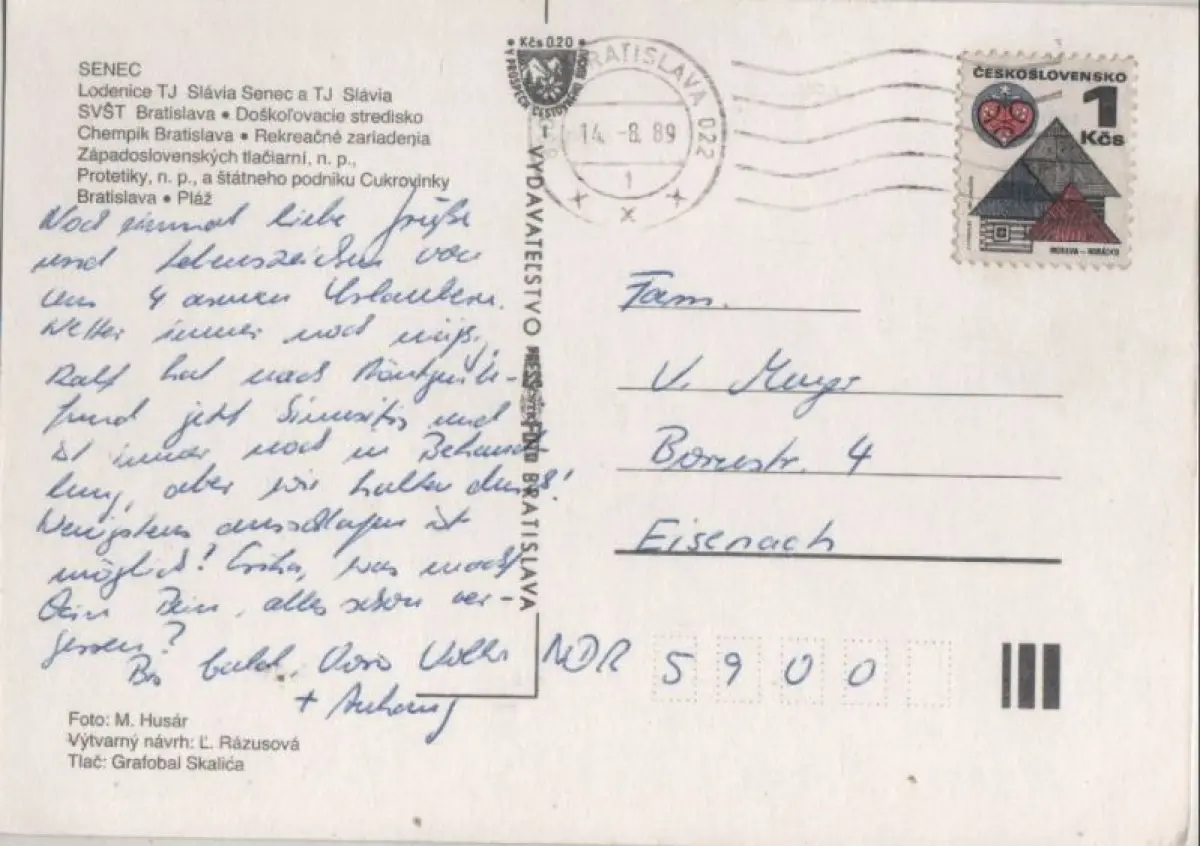 SENEC
Lodenice TJ Slávia Senec a TJ Slávia
SVŠT Bratislava • Doškoľovacie stredisko
Chempik Bratislava • Rekreačné zariadenia
Západoslovenských tlačiarní, n. p.,
Protetiky, n. p., a štátneho podniku Cukrovinky
Bratislava • Pláž
Noch einmal liebe Grüße
und Lebenszeichen von
uns 4 armen Urlaubern.
Wetter immer noch
Ralf hat nach Röntgenbe-
fund jetzt Sinusitis und
ist immer noch in Behand-
lung, aber wir halten durch!
Wenigstens ausschlafen ist
möglich! was macht
Dein Bein, alles schon ver-
gessen?
Bis bald,
+ Anhang
Foto: M. Husár
Výtvarný návrh: Ľ. Rázusová
Tlač: Grafobal Skalica
Kčs 0.20
VYDAVATEĽSTVO BRATISLAVA
BRATISLAVA 022
14. -8. 89
1
ČESKOSLOVENSKO
1
Kčs
MORAVA - HORÁCKO
Fam.
V.
4
Eisenach
NDR 5900